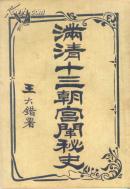 滿清十三朝宮闈秘史
王大錯署